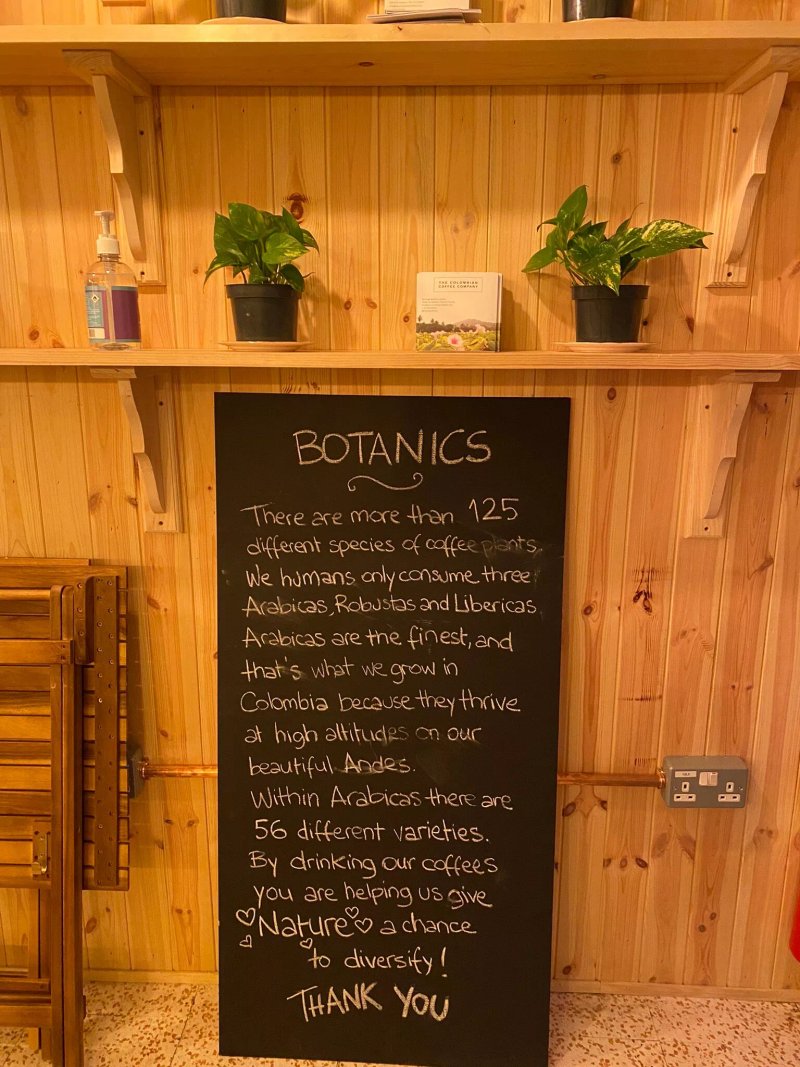 THE COLOMBIAN
COFFEE COMPANY
BOTANICS
There are more than 125
different species of coffee plants.
We humans only consume three:
Arabicas, Robustas and Libericas.
Arabicas are the finest, and
that's what we grow in
Colombia because they thrive
at high altitudes on our
beautiful Andes.
Within Arabicas there are
56 different varieties.
By drinking our coffees
you are helping us give
Nature a chance
to diversify!
THANK YOU